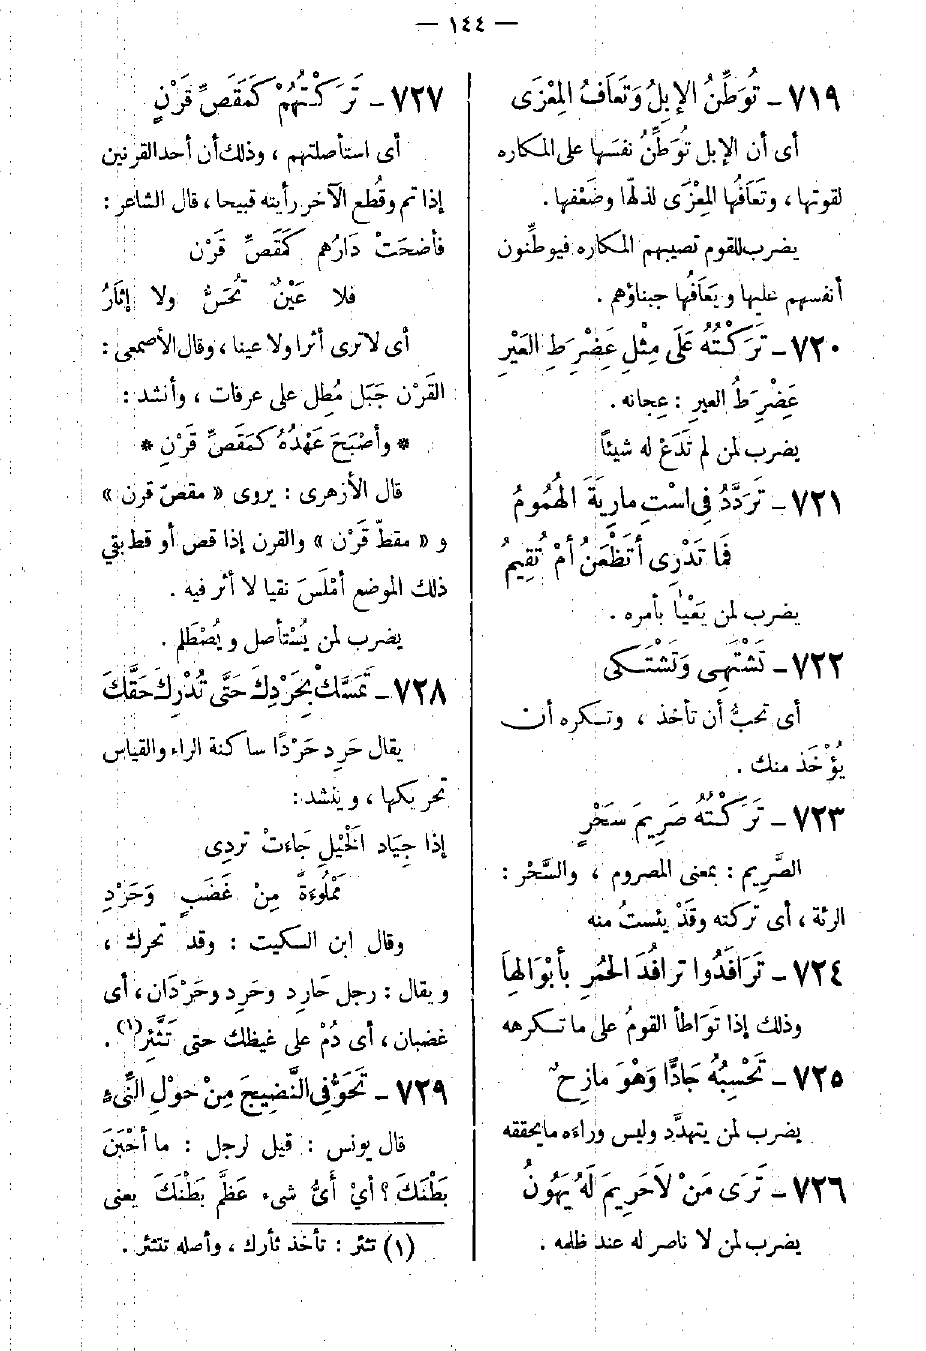 — ١٤٤ —
٧١٩ – تُوَطِّنُ الإِبِلُ وَتَعَافُ المِعْزَى
أى أن الإبل تُوَطِّنُ نفسَها على المكاره
لقوتها ، وتَعَافُها المِعْزَى لذلها وضَعْفها .
يضرب للقوم تصيبهم المكاره فيوطِّنون
أنفسهم عليها ويَعَافُها جبناؤهم .
٧٢٠ – تَرَكْتُهُ عَلَى مِثْلِ عِضْرِطِ العَيْرِ
عِضْرِطُ العيرِ : عِجانه .
يضرب لمن لم تَدَعْ له شيئاً
٧٢١ – تَرَدَّدُ فِى اسْتِ مارِيَةَ الهُمُومُ
فَمَا تَدْرِى أَتَظْعَنُ أمْ تُقِيمُ
يضرب لمن يَعْيَا بأمره .
٧٢٢ – تَشْتَهِى وَتَشْتَكى
أى تحبُّ أن تأخذ ، وتكره أن
يُؤْخَذ منك .
٧٢٣ – تَرَكْتُهُ صَرِيمَ سَحْرٍ
الصَّرِيم : بمعنى المصروم ، والسَّحْر :
الرئة ، أى تركته وقَدْ يئستُ منه
٧٢٤ – تَرَافَدُوا ترافُدَ الحُمُرِ بأبْوَالِهَا
وذلك إذا تَوَاطأ القومُ على ما تكرهه
٧٢٥ – تَحْسِبُهُ جَادًّا وَهْوَ مازِحٌ
يضرب لمن يتهدَّد وليس وراءه ما يحققه
٧٢٦ – تَرَى مَنْ لاَ حَرِيمَ لَهُ يَهُونُ
يضرب لمن لا ناصر له عند ظلمه .
٧٢٧ – تَرَكْتُهُمْ كَمَقَصِّ قَرْنٍ
أى استأصلتهم ، وذلك أن أحد القرنين
إذا تم وقُطع الآخر رأيته قبيحا ، قال الشاعر :
فأضحَتْ دَارُهم كَمَقَصِّ قَرْن
فلا عَيْنٌ تُحَسُّ ولا إثَارُ
أى لا ترى أثرا ولا عينا ، وقال الأصمعى :
القَرْن جَبَل مُطِل على عرفات ، وأنشد :
* وأصْبَحَ عَهْدُهُ كمَقَصِّ قَرْنِ *
قال الأزهرى : يروى « مقصّ قرن »
و « مقطّ قَرْن » والقرن إذا قص أو قط بقي
ذلك الموضع أمْلَسَ نقيا لا أثر فيه .
يضرب لمن يُسْتأصل ويُصْطَلم .
٧٢٨ – تَمَسَّكْ بِحَرْدِكَ حَتَّى تُدْرِكَ حَقَّكَ
يقال حَرِد حَرْدًا ساكنة الراء والقياس
تحريكها ، وينشد :
إذا جِيَاد الخَيْلِ جَاءتْ تردِى
مَمْلُوءَةً مِنْ غَضَبٍ وَحَرْدِ
وقال ابن السكيت : وقد تحرك ،
ويقال : رجل حَارِد وحَرِد وحَرْدَان ، أى
غضبان ، أى دُمْ على غيظك حتى تَثَّئِر(١) .
٧٢٩ – تَحَوَّفِى النَّضِيجَ مِنْ حَوْلِ النِّىءِ
قال يونس : قيل لرجل : ما أحْبَنَ
بَطْنَكَ ؟ أيْ أَيُّ شىء عَظَّمَ بَطْنَكَ يعنى
(١) تثئر : تأخذ ثأرك ، وأصله تتثئر .